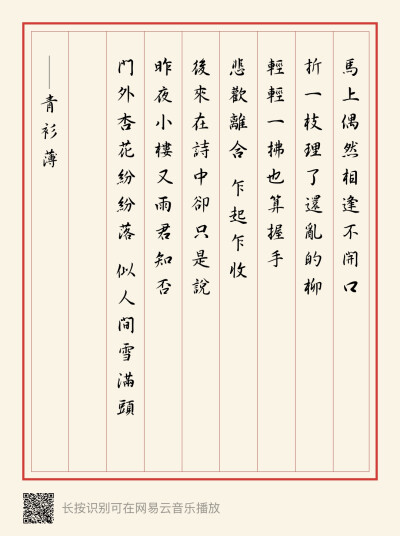 馬上偶然相逢不開口
折一枝理了還亂的柳
輕輕一拂也算握手
悲歡離合 乍起乍收
後來在詩中卻只是說
昨夜小樓又雨君知否
門外杏花紛紛落 似人間雪滿頭
——青衫薄
长按识别可在网易云音乐播放